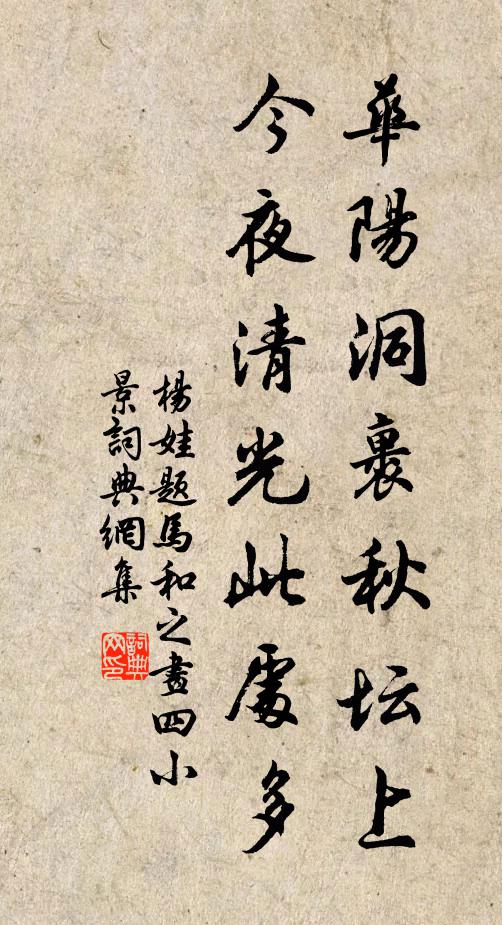 華陽洞裏秋坛上
今夜清光此處多
楊娃題馬和之畫四小
景詞典網集
詞典
网印